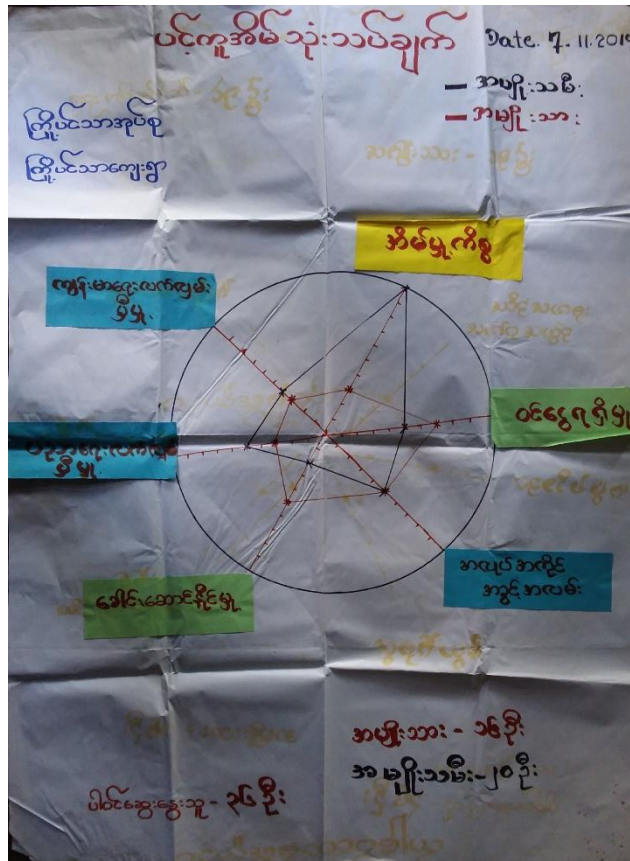 ပင့်ကူအိမ်သုံးသပ်ချက်
Date. 7.11.201
— အမျိုးသမီး
— အမျိုးသား
ကြို့ပင်သာအုပ်စု
ကြို့ပင်သာကျေးရွာ
အိမ်မှုကိစ္စ
ကျန်းမာရေးလက်လှမ်း
မှီမှု
ဝင်ငွေရရှိမှု
ပညာရေးလက်လှမ်း
မှီမှု
အလုပ်အကိုင်
အခွင့်အလမ်း
ခေါင်းဆောင်နိုင်မှု
အမျိုးသား - ၁၆ဦး
အမျိုးသမီး - ၂၀ဦး
ပါဝင်ဆွေးနွေးသူ - ၃၆ဦး